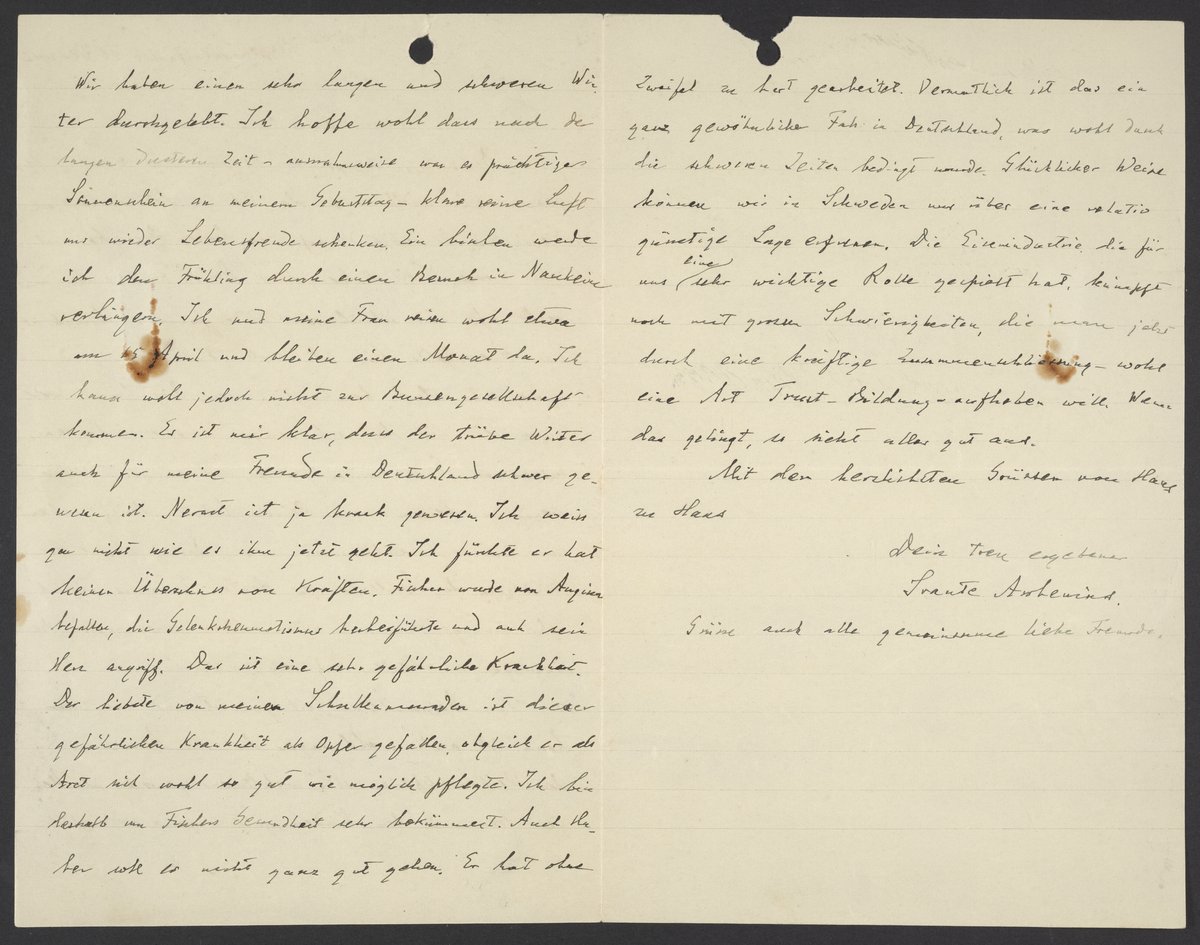 Wir haben einen sehr langen und schweren Win-
ter durchgelebt. Ich hoffe wohl dass nach der
langen düsteren Zeit – ausnahmweise war es prächtiger
Sonnenschein an meinem Geburtstag – klare reine Luft
uns wieder Lebensfreude schenken. Ein bischen werde
ich den Frühling durch einen Besuch in Nauheim
verlängern. Ich und meine Frau reisen wohl etwa
am 15 April und bleiben einen Monat da. Ich
kann wohl jedoch nicht zur Bunsengesellschaft
kommen. Es ist mir klar, dass der trübe Winter
auch für meine Freunde in Deutschland schwer ge-
wesen ist. Nernst ist ja krank gewesen. Ich weiss
gar nicht wie es ihm jetzt geht. Ich fürchte er hat
keinen Überschuss von Kräften. Fischer wurde von Angina
befallen, die Gelenkrheumatismus herbeiführte und auch sein
Herz angriff. Das ist eine sehr gefährliche Krankheit.
Der liebste von meinen Schulkameraden ist dieser
gefährlichen Krankheit als Opfer gefallen, obgleich er als
Arzt sich wohl so gut wie möglich pflegte. Ich bin
deshalb um Fischers Gesundheit sehr bekümmert. Auch Ha-
ber soll es nicht ganz gut gehen. Er hat ohne
Zweifel zu hart gearbeitet. Vermutlich ist das ein
ganz gewöhnlicher Fall in Deutschland, was wohl durch
die schweren Zeiten bedingt wurde. Glücklicher Weise
können wir in Schweden uns über eine relativ
günstige Lage erfreuen. Die Eisenindustrie, die für
uns eine sehr wichtige Rolle gespielt hat, kämpft
noch mit grossen Schwierigkeiten, die man jetzt
durch eine kräftige Zusammenschliessung – wohl
eine Art Trust-Bildung – aufheben will. Wenn
das gelingt, so sieht alles gut aus.
Mit den herzlichsten Grüssen von Haus
zu Haus
Dein treu ergebener
Svante Arrhenius.
Grüsse auch alle gemeinsame liebe Freunde.